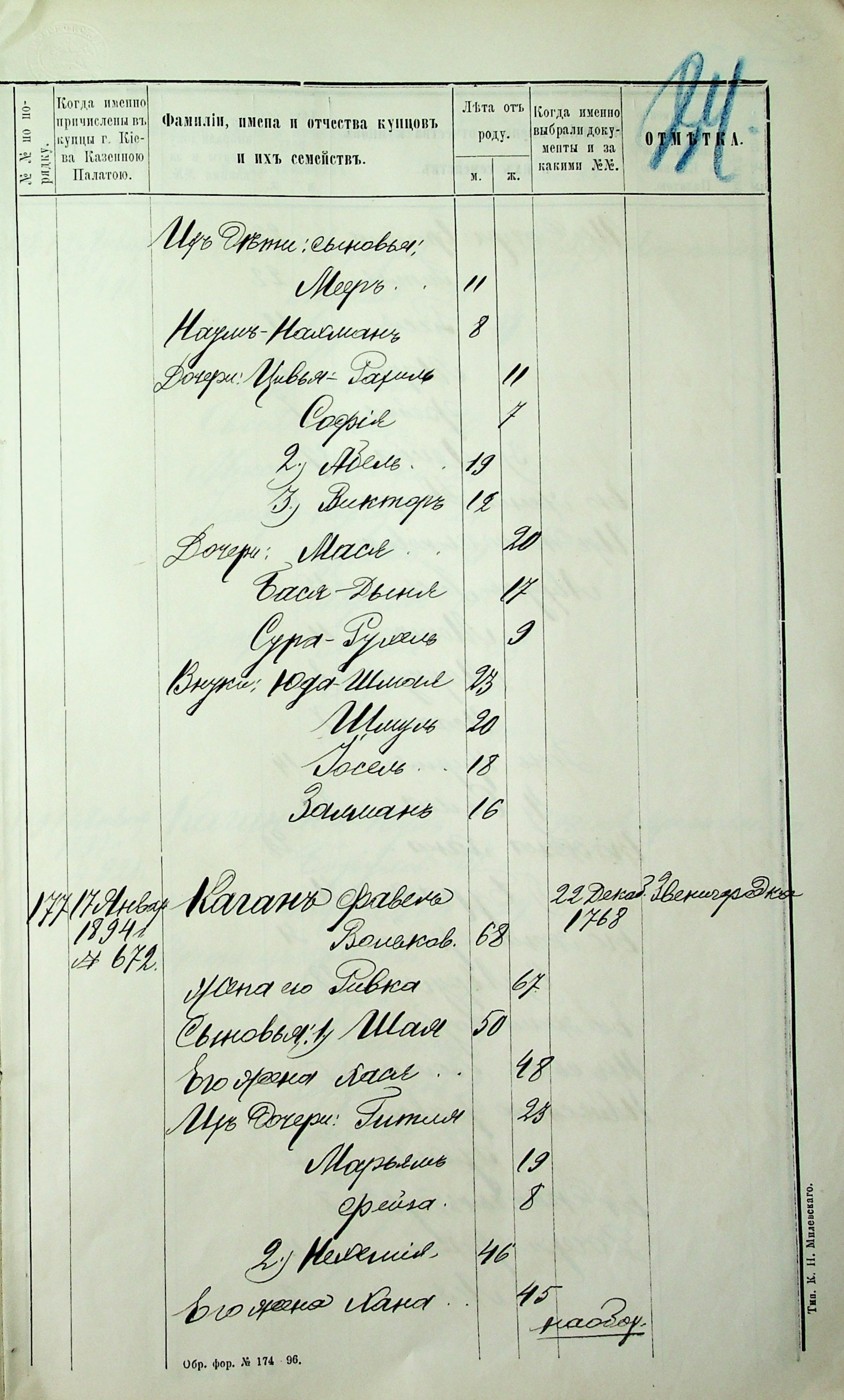 24.
№№ по по-
рядку.
Когда именно
причислены въ
купцы г. Кіе-
ва Казенною
Палатою.
Фамиліи, имена и отчества купцовъ
и ихъ семействъ.
Лѣта отъ
роду.
м.
ж.
Когда именно
выбрали доку-
менты и за
какими №№.
ОТМѢТКА.
Ихъ Дѣти: сыновья:
Мееръ . . 11
Наумъ-Нахманъ 8
Дочери: Цивья-Рахиль 11
Софія 7
2.) Абель . . 19
3.) Викторъ 12
Дочери: Мася . . 20
Бася-Дыня 17
Сура-Рухель 9
Внуки: Юда-Шмоил 23
Шмуль 20
Іосель . . 18
Залманъ 16
177 17 Январ Каганъ Фавель 22 Декаб. Звенигородка
1894 г. 1768
Вольков. 68
№ 672.
Жена его Ривка 67
Сыновья: 1) Шая 50
Его жена Хася . . 48
Ихъ Дочери: Гитля 23
Марьямъ 19
Фейга . 8
2.) Нехемія. 46
Его жена Хана . . 45
на обор.
Обр. фор. № 174 - 96.
Тип. К. Н. Милевскаго.